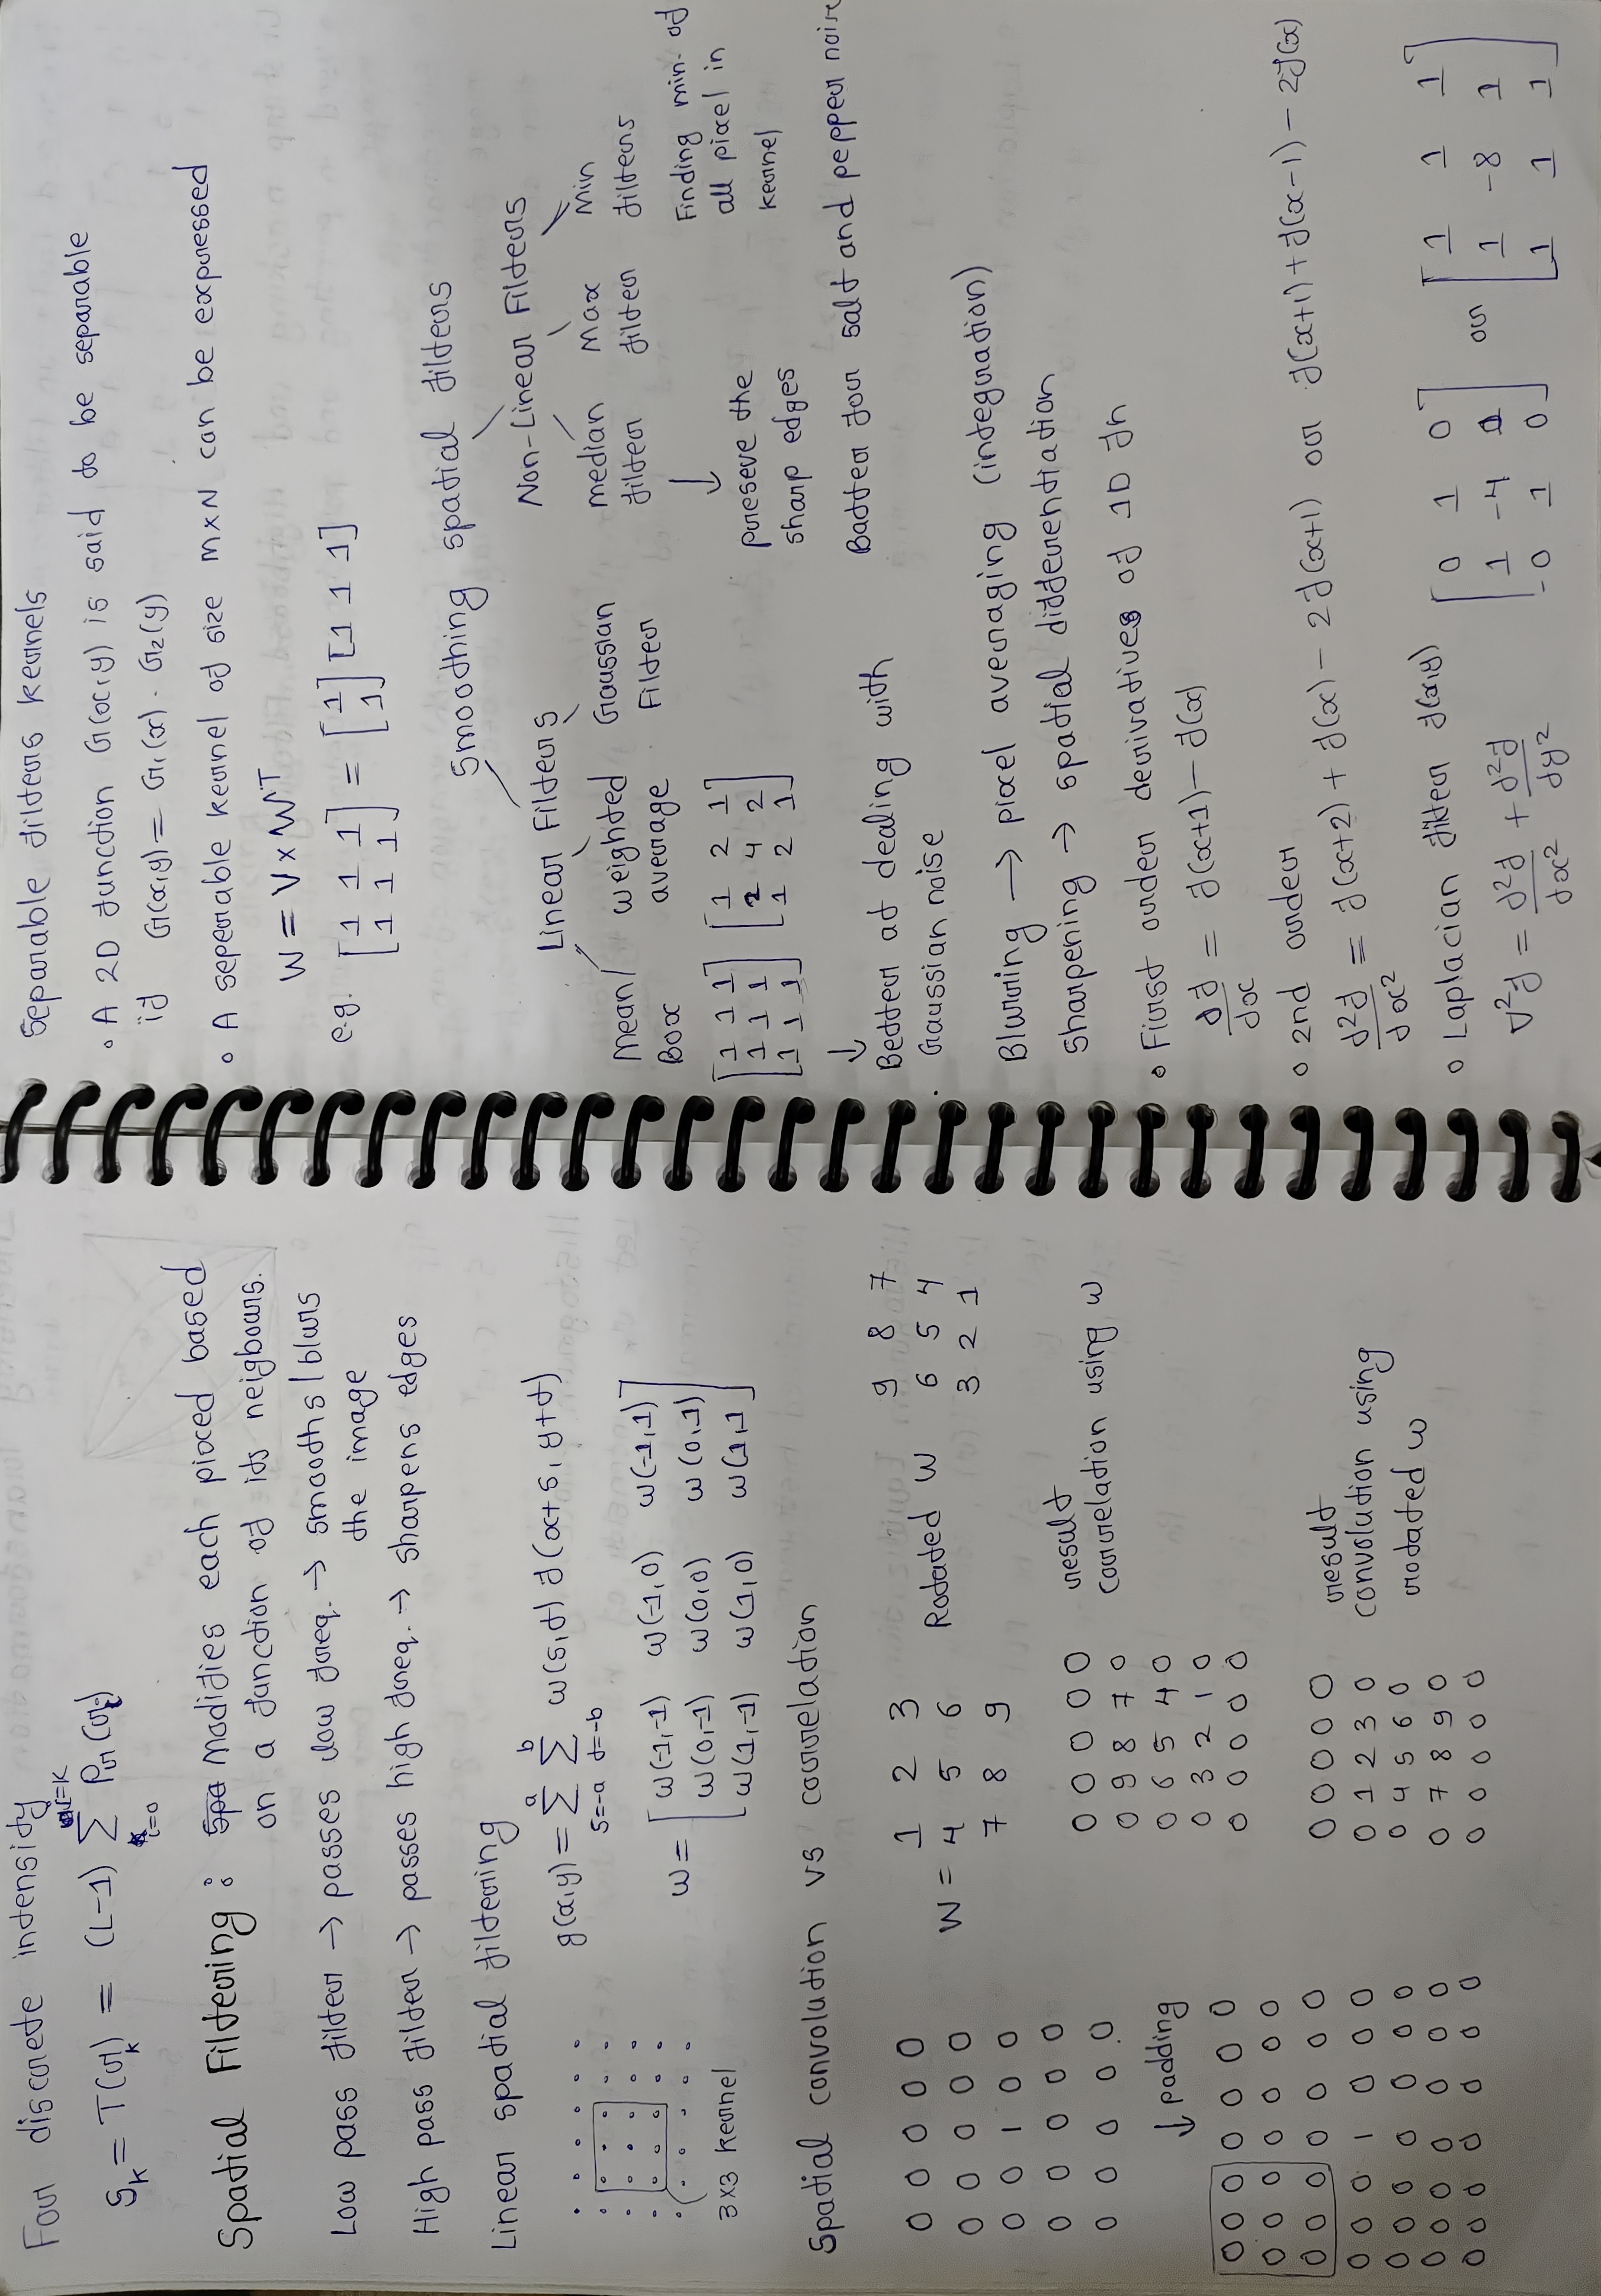 For discrete intensity
S_k = T(r_k) = (L-1) Σ_{i=0}^{i=k} P_r(r_i)
Spatial Filtering : modifies each pixced based
on a function of its neigbours.
Low pass filter → passes low freq. → smooths/blurs
the image
High pass filter → passes high freq. → sharpens edges
Linear spatial filtering
g(x,y) = Σ_{s=-a}^{a} Σ_{t=-b}^{b} w(s,t) f(x+s, y+t)
3x3 kernel
w = [ w(-1,-1) w(-1,0) w(-1,1)
w(0,-1) w(0,0) w(0,1)
w(1,-1) w(1,0) w(1,1) ]
Spatial convolution vs correlation
0 0 0 0 0
0 0 0 0 0
0 0 1 0 0
0 0 0 0 0
0 0 0 0 0
W =
1 2 3
4 5 6
7 8 9
Rotated W
9 8 7
6 5 4
3 2 1
↓ padding
0 0 0 0 0 0 0
0 0 0 0 0 0 0
0 0 0 0 0 0 0
0 0 0 1 0 0 0
0 0 0 0 0 0 0
0 0 0 0 0 0 0
0 0 0 0 0 0 0
0 0 0 0 0
0 9 8 7 0
0 6 5 4 0
0 3 2 1 0
0 0 0 0 0
result
correlation using w
0 0 0 0 0
0 1 2 3 0
0 4 5 6 0
0 7 8 9 0
0 0 0 0 0
result
convolution using
rotated w
Separable filters kernels
• A 2D function G(x,y) is said to be separable
if G(x,y) = G₁(x) . G₂(y)
• A seperable kernel of size m×N can be expressed
W = V × Wᵀ
e.g. [ 1 1 1
1 1 1 ] = [ 1
1 ] [1 1 1]
Smoothing spatial filters
Linear Filters
Non-Linear Filters
Mean/
Box
weighted
average
Gaussian
Filter
median
filter
Max
filter
Min
filters
[ 1 1 1
1 1 1
1 1 1 ]
[ 1 2 1
2 4 2
1 2 1 ]
↓
preseve the
sharp edges
Finding min. of
all pixel in
kernel
↓
Better at dealing with
Gaussian noise
Batter for salt and pepper noise
Blurring → pixel averaging (integration)
sharpening → spatial differentiation
• First order derivatives of 1D fn
df/dx = f(x+1) - f(x)
• 2nd order
d²f/dx² = f(x+2) + f(x) - 2f(x+1) or f(x+1) + f(x-1) - 2f(x)
• Laplacian filter f(x,y)
∇²f = d²f/dx² + d²f/dy²
[ 0 1 0
1 -4 1
0 1 0 ] or [ 1 1 1
1 -8 1
1 1 1 ]